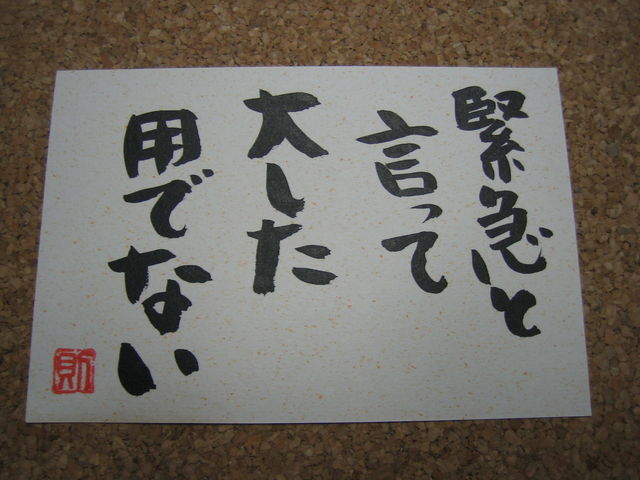 緊急と
言って
大した
用でない